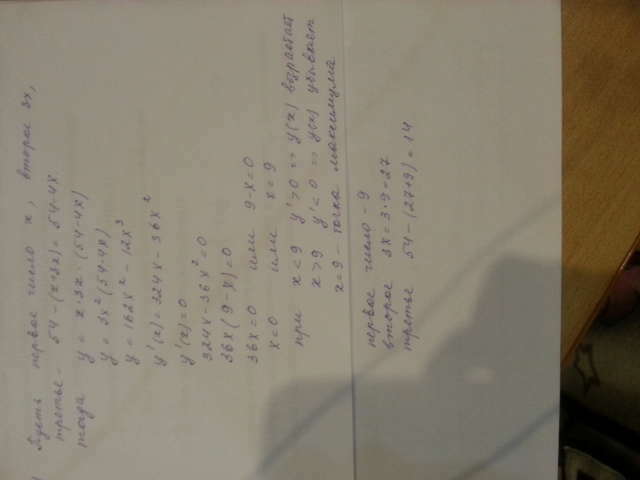 Пусть первое число x, второе 3x,
третье - 54-(x+3x)=54-4x
тогда y = x·3x·(54-4x)
y = 3x²(54-4x)
y = 162x² - 12x³
y'(x)=324x-36x²
y'(x)=0
324x-36x²=0
36x(9-x)=0
36x=0 или 9-x=0
x=0 или x=9
при x<9 y'>0 => y(x) возрастает
x>9 y'<0 => y(x) убывает
x=9 - точка максимума
первое число - 9
второе 3x=3·9=27
третье 54-(27+9)=14